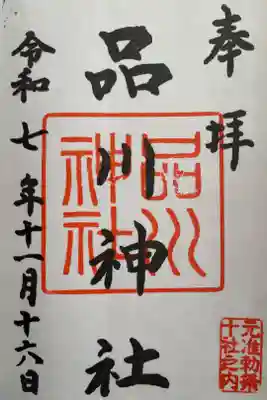 奉拝
品川神社
品川神社
令和七年十一月十六日
元准勅祭
十社之内